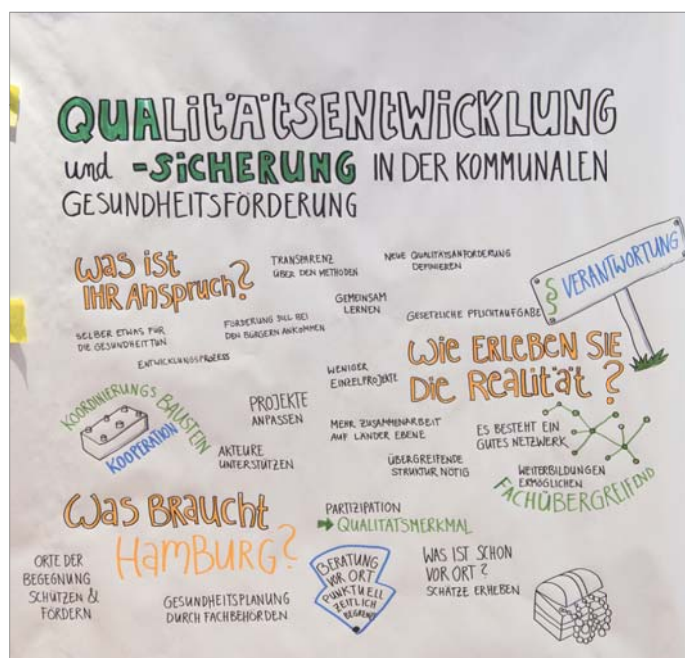 QUALITÄTSENTWICKLUNG
und -SICHERUNG IN DER KOMMUNALEN
GESUNDHEITSFÖRDERUNG
Was ist
IHR Anspruch?
TRANSPARENZ
ÜBER DEN METHODEN
NEUE QUALITÄTSANFORDERUNG
DEFINIEREN
§ VERANTWORTUNG
GEMEINSAM
LERNEN
GESETZLICHE PFLICHTAUFGABE
SELBER ETWAS FÜR
DIE GESUNDHEIT TUN
FÖRDERUNG SOLL BEI
DEN BÜRGERN ANKOMMEN
ENTWICKLUNGSPROZESS
WIE ERLEBEN SIE
DIE Realität?
WENIGER
EINZELPROJEKTE
KOORDINIERUNGSBAUSTEIN
KOOPERATION
PROJEKTE
ANPASSEN
MEHR ZUSAMMENARBEIT
AUF LÄNDER EBENE
ES BESTEHT EIN
GUTES NETZWERK
AKTEURE
UNTERSTÜTZEN
ÜBERGREIFENDE
STRUKTUR NÖTIG
WEITERBILDUNGEN
ERMÖGLICHEN
FACHÜBERGREIFEND
Was BRAUCHT
HAMBURG?
PARTIZIPATION
→ QUALITÄTSMERKMAL
ORTE DER
BEGEGNUNG
SCHÜTZEN &
FÖRDERN
GESUNDHEITSPLANUNG
DURCH FACHBEHÖRDEN
BERATUNG
VOR ORT
PUNKTUELL
ZEITLICH
BEGRENZT
WAS IST SCHON
VOR ORT?
SCHÄTZE ERHEBEN